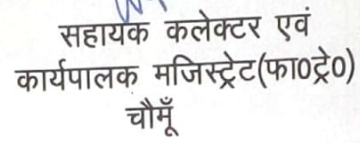 सहायक कलेक्टर एवं
कार्यपालक मजिस्ट्रेट(फा०ट्रे०)
चौमूँ